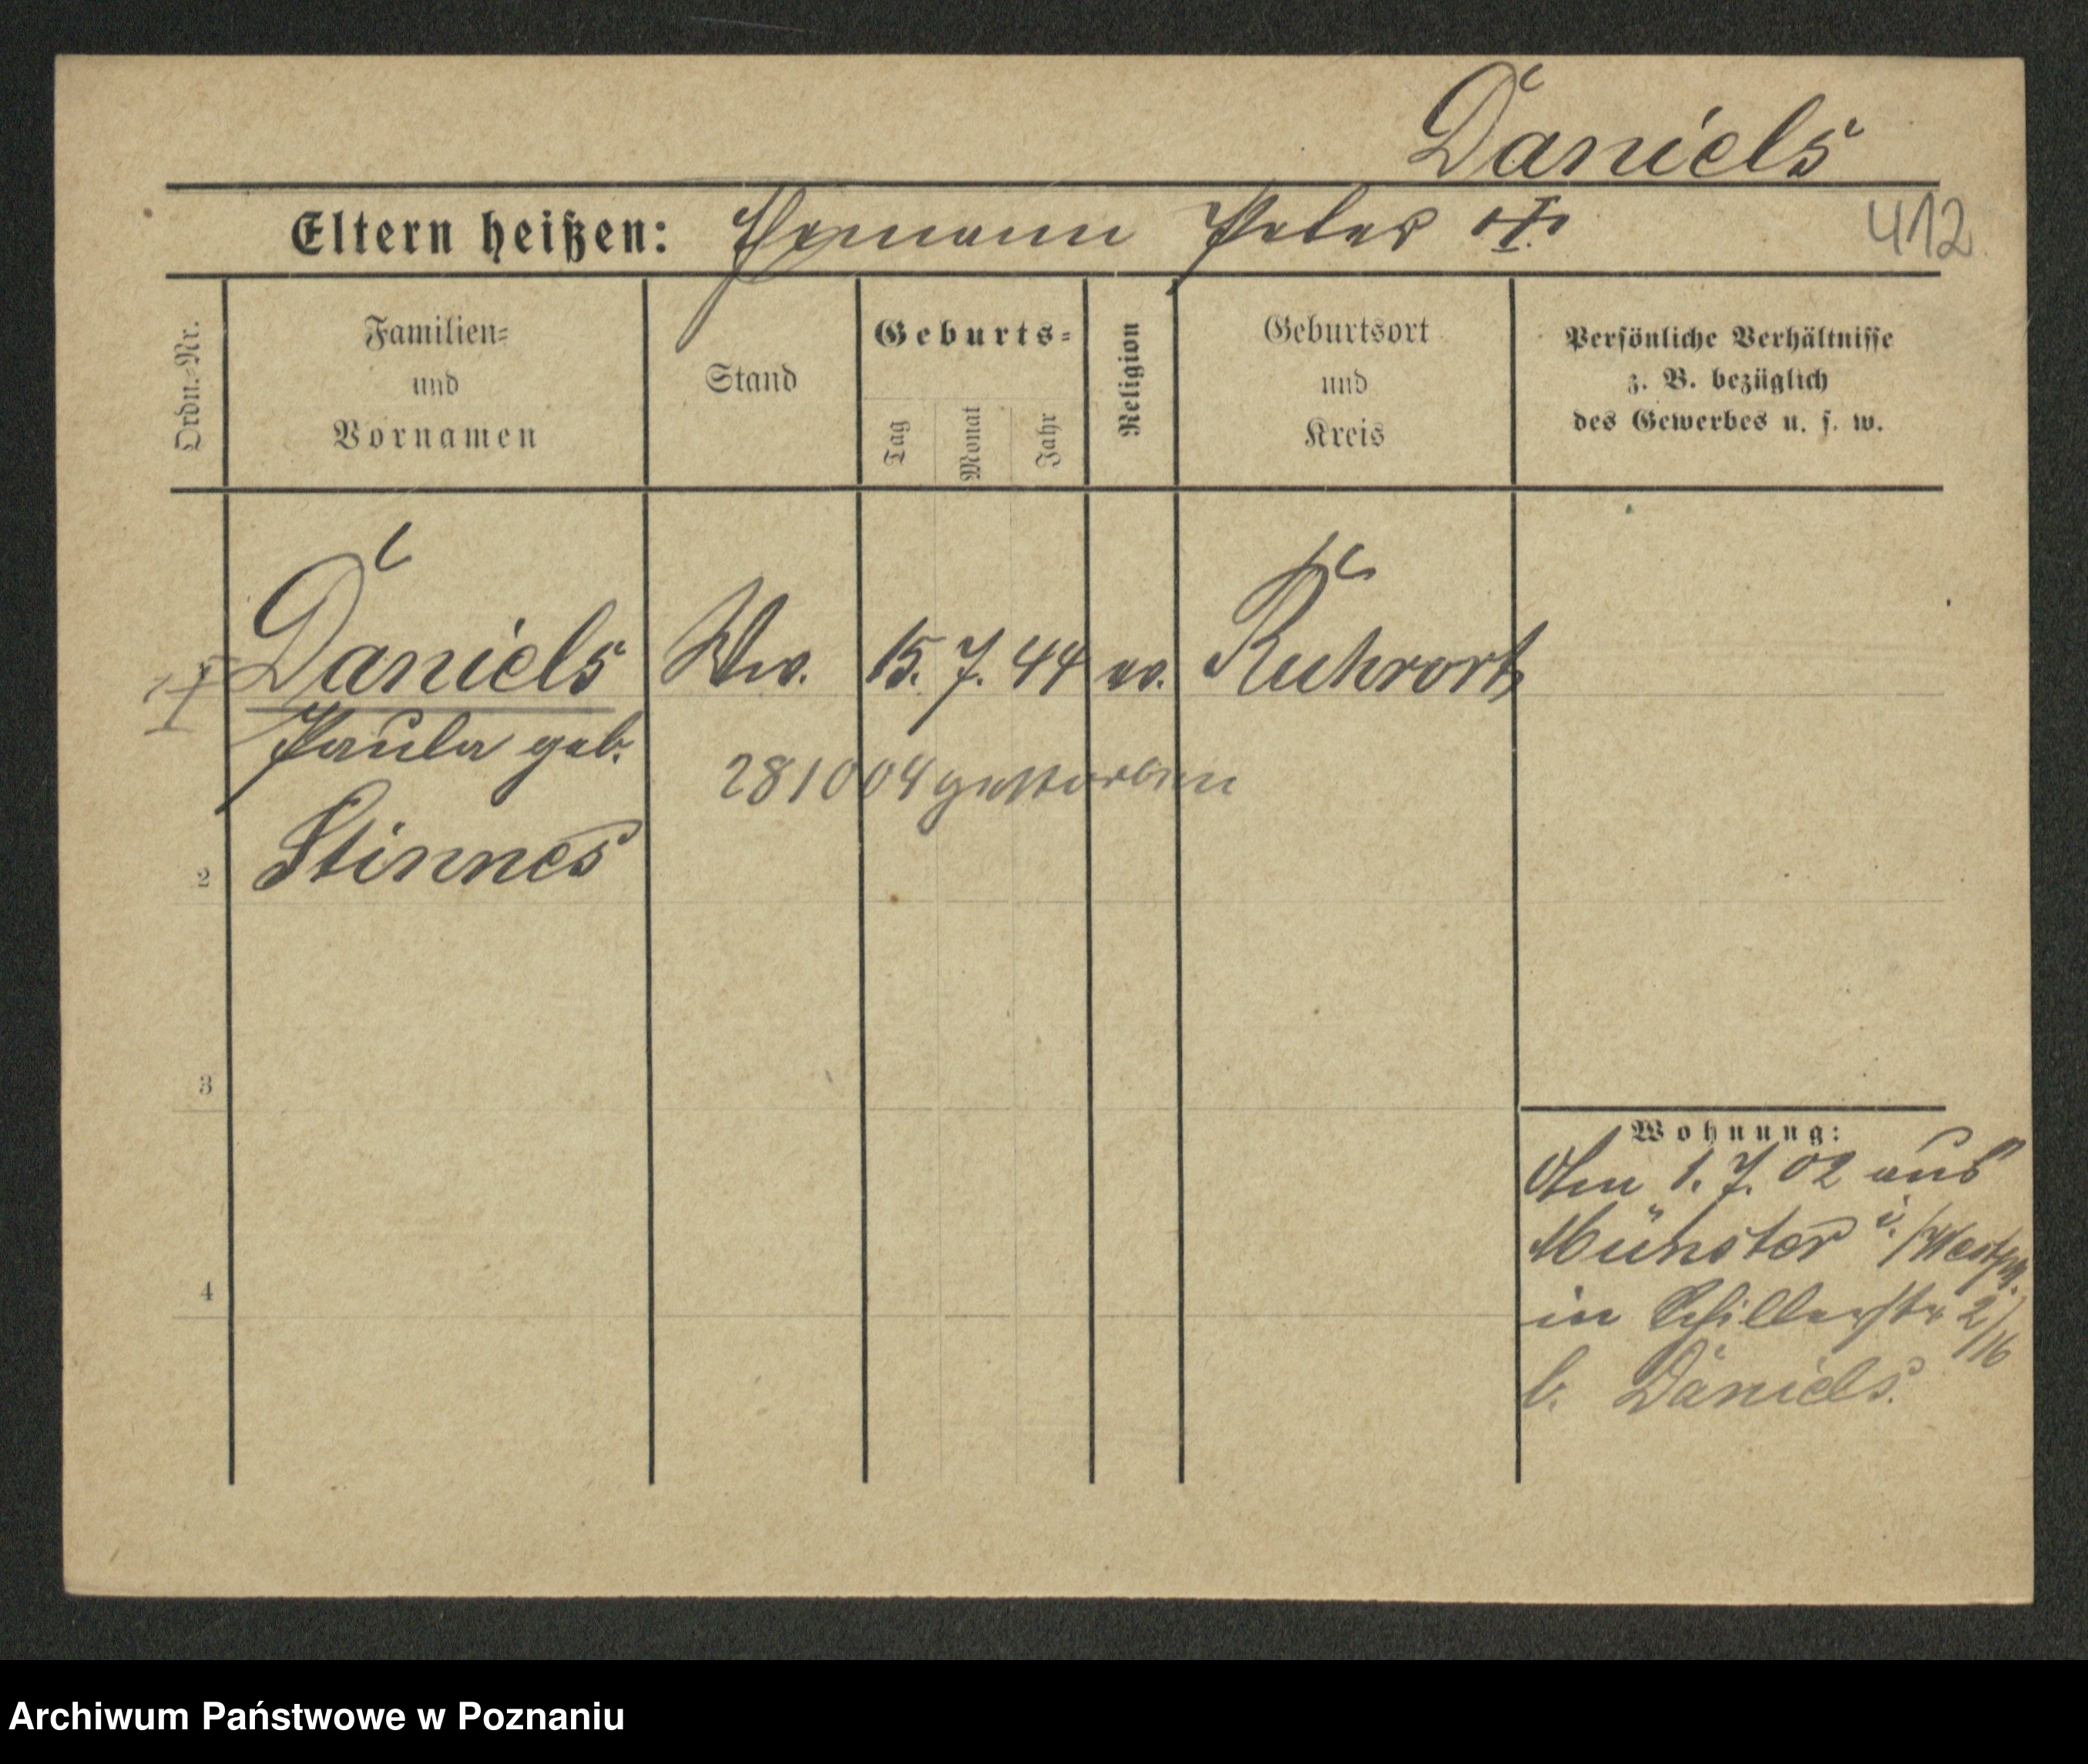 Daniels
Eltern heißen: Hermann Peter
412
Ordn.-Nr.
Familien-
und
Vornamen
Stand
Geburts-
Tag
Monat
Jahr
Religion
Geburtsort
und
Kreis
Persönliche Verhältnisse
z. B. bezüglich
des Gewerbes u. s. w.
Daniels Ww. 15. 7. 44 ev. Ruhrort
Paula geb.
281004 gestorben
2 Stinnes
3
4
Wohnung:
Am 1. 7. 02 aus
Münster i./Westph.
in Schillerstr 2/16
b. Daniels.
Archiwum Państwowe w Poznaniu